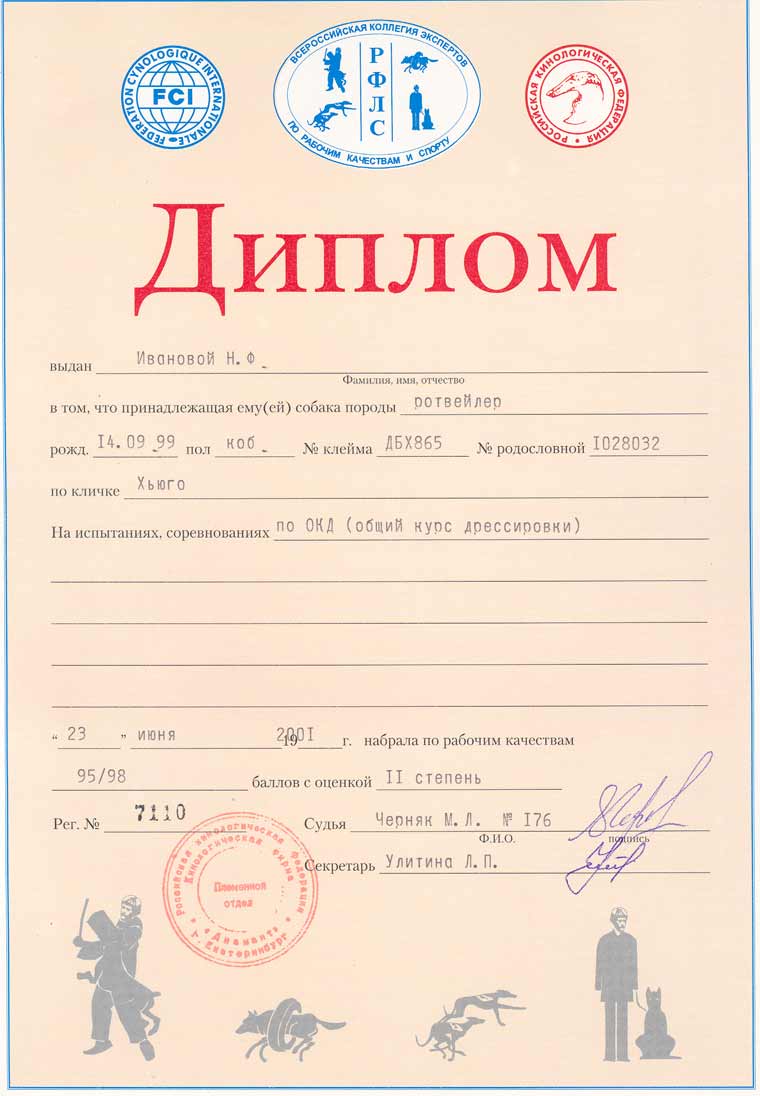 FEDERATION CYNOLOGIQUE INTERNATIONALE
FCI
ВСЕРОССИЙСКАЯ КОЛЛЕГИЯ ЭКСПЕРТОВ
РФЛС
ПО РАБОЧИМ КАЧЕСТВАМ И СПОРТУ
РОССИЙСКАЯ КИНОЛОГИЧЕСКАЯ ФЕДЕРАЦИЯ
Диплом
выдан Ивановой Н.Ф.
Фамилия, имя, отчество
в том, что принадлежащая ему(ей) собака породы ротвейлер
рожд. I4.09.99 пол коб. № клейма ДБХ865 № родословной I028032
по кличке Хьюго
На испытаниях, соревнованиях по ОКД (общий курс дрессировки)
“ 23 ” июня 19 200I г. набрала по рабочим качествам
95/98 баллов с оценкой II степень
Рег. № 7110 Судья Черняк М.Л. № I76
Ф.И.О. подпись
Секретарь Улитина Л.П.
Российская кинологическая федерация
Кинологическая фирма
Племенной
отдел
«Диамант»
г. Екатеринбург